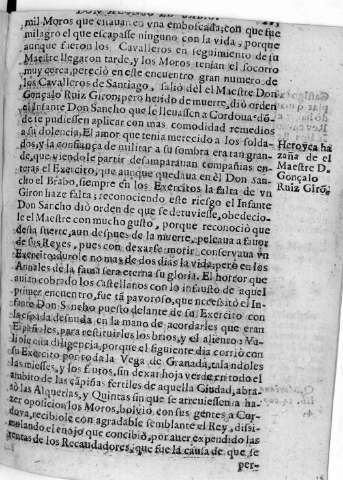 DON ALONSO EL SABIO.
mil Moros que estavan en vna emboscada, con que fue
milagro el que escapasse ninguno con la vida, porque
aunque fueron los Cavalleros en seguimiento de su
Maestre llegaron tarde, y los Moros tenian el socorro
muy cerca, pereciò en este encuentro gran numero de
los Cavalleros de Santiago, saliò dèl el Maestre Don
Gonçalo Ruiz Giron, pero herido de muerte, diò orden
el Infante Don Sancho que le llevassen a Cordoua, dõ-
de te pudiessen aplicar con mas comodidad remedios
a su dolencia. El amor que tenia merecido a los solda-
dos, y la confiança de militar a su sombra era tan gran-
de, que viendole partir desamparauan compañias en-
teras el Exercito, que aunque quedaua en èl Don San-
cho el Brabo, siempre en los Exercitos la falta de vn
Giron haze falta; reconociendo este riesgo el Infante
Don Sancho diò orden de que se detuviesse, obedeciò-
le el Maestre con mucho gusto, porque reconociò que
desta suerte, aun despues de la muerte, peleaua a fauor
de sus Reyes, pues con dexarse morir conservaua vn
Exercito: duròle no mas de dos dias la vida, pero en los
Annales de la fama serà eterna su gloria. El horror que
auian cobrado los castellanos con lo infausto de aquel
primer encuentro, fue tã pavoroso, que necessitò el In-
fante Don Sancho puesto delante de su Exercito con
la espada desnuda en la mano de acordarles que eran
Españoles, para restituirles los brios, y el aliento: Va-
liòle esta diligencia, porque el siguiente dia corriò con
su Exercito por toda la Vega de Granada, talandoles
las miesses, y los frutos, sin dexar hoja verde en todo el
ambito de las cãpiñas fertiles de aquella Ciudad, abra-
sò las Alquerias, y Quintas sin que se atreviessen a ha-
zer oposicion los Moros, bolviò con sus gentes a Cor-
dova, recibiòle con agradable semblante el Rey, dissi-
mulando el enojo que concibiò, por auer expendido las
rentas de los Recaudadores, que fue la causa de que se
per-
Heroyca ha
zaña de el
Maestre D.
Gonçalo
Ruiz Girõ.